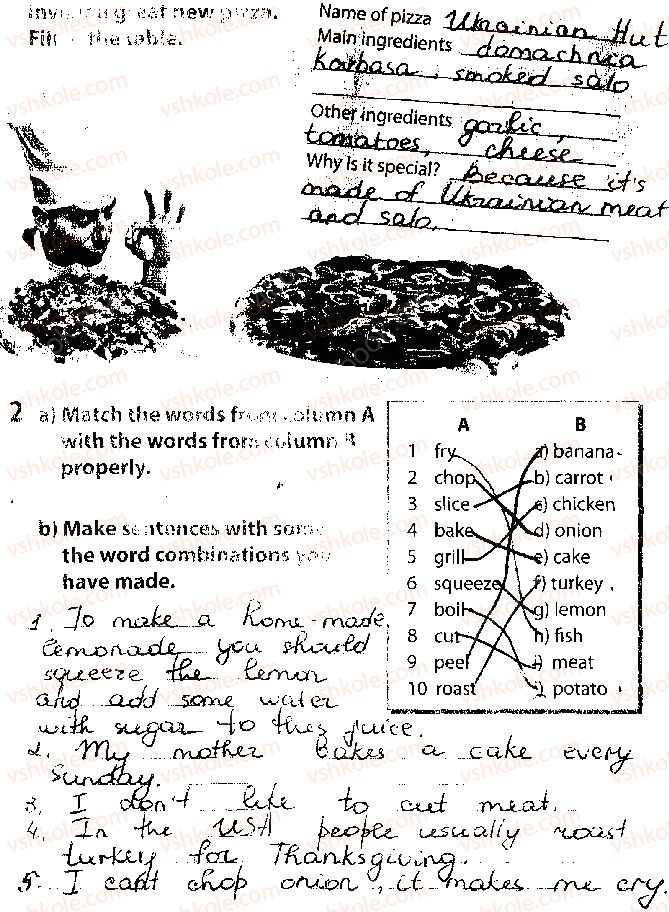 Invent a great new pizza.
Fill in the table.
Name of pizza Ukrainian Hut
Main ingredients domachnia
kovbasa, smoked salo
Other ingredients garlic,
tomatoes, cheese
Why is it special? Because it's
made of Ukrainian meat
and salo.
2 a) Match the words from column A
with the words from column B
properly.
b) Make sentences with some
the word combinations you
have made.
A B
1 fry a) banana
2 chop b) carrot
3 slice c) chicken
4 bake d) onion
5 grill e) cake
6 squeeze f) turkey
7 boil g) lemon
8 cut h) fish
9 peel i) meat
10 roast j) potato
1. To make a home-made
lemonade you should
squeeze the lemon
and add some water
with sugar to this juice.
2. My mother bakes a cake every
Sunday.
3. I don't like to cut meat.
4. In the USA people usually roast
turkey for Thanksgiving.
5. I can't chop onion, it makes me cry.